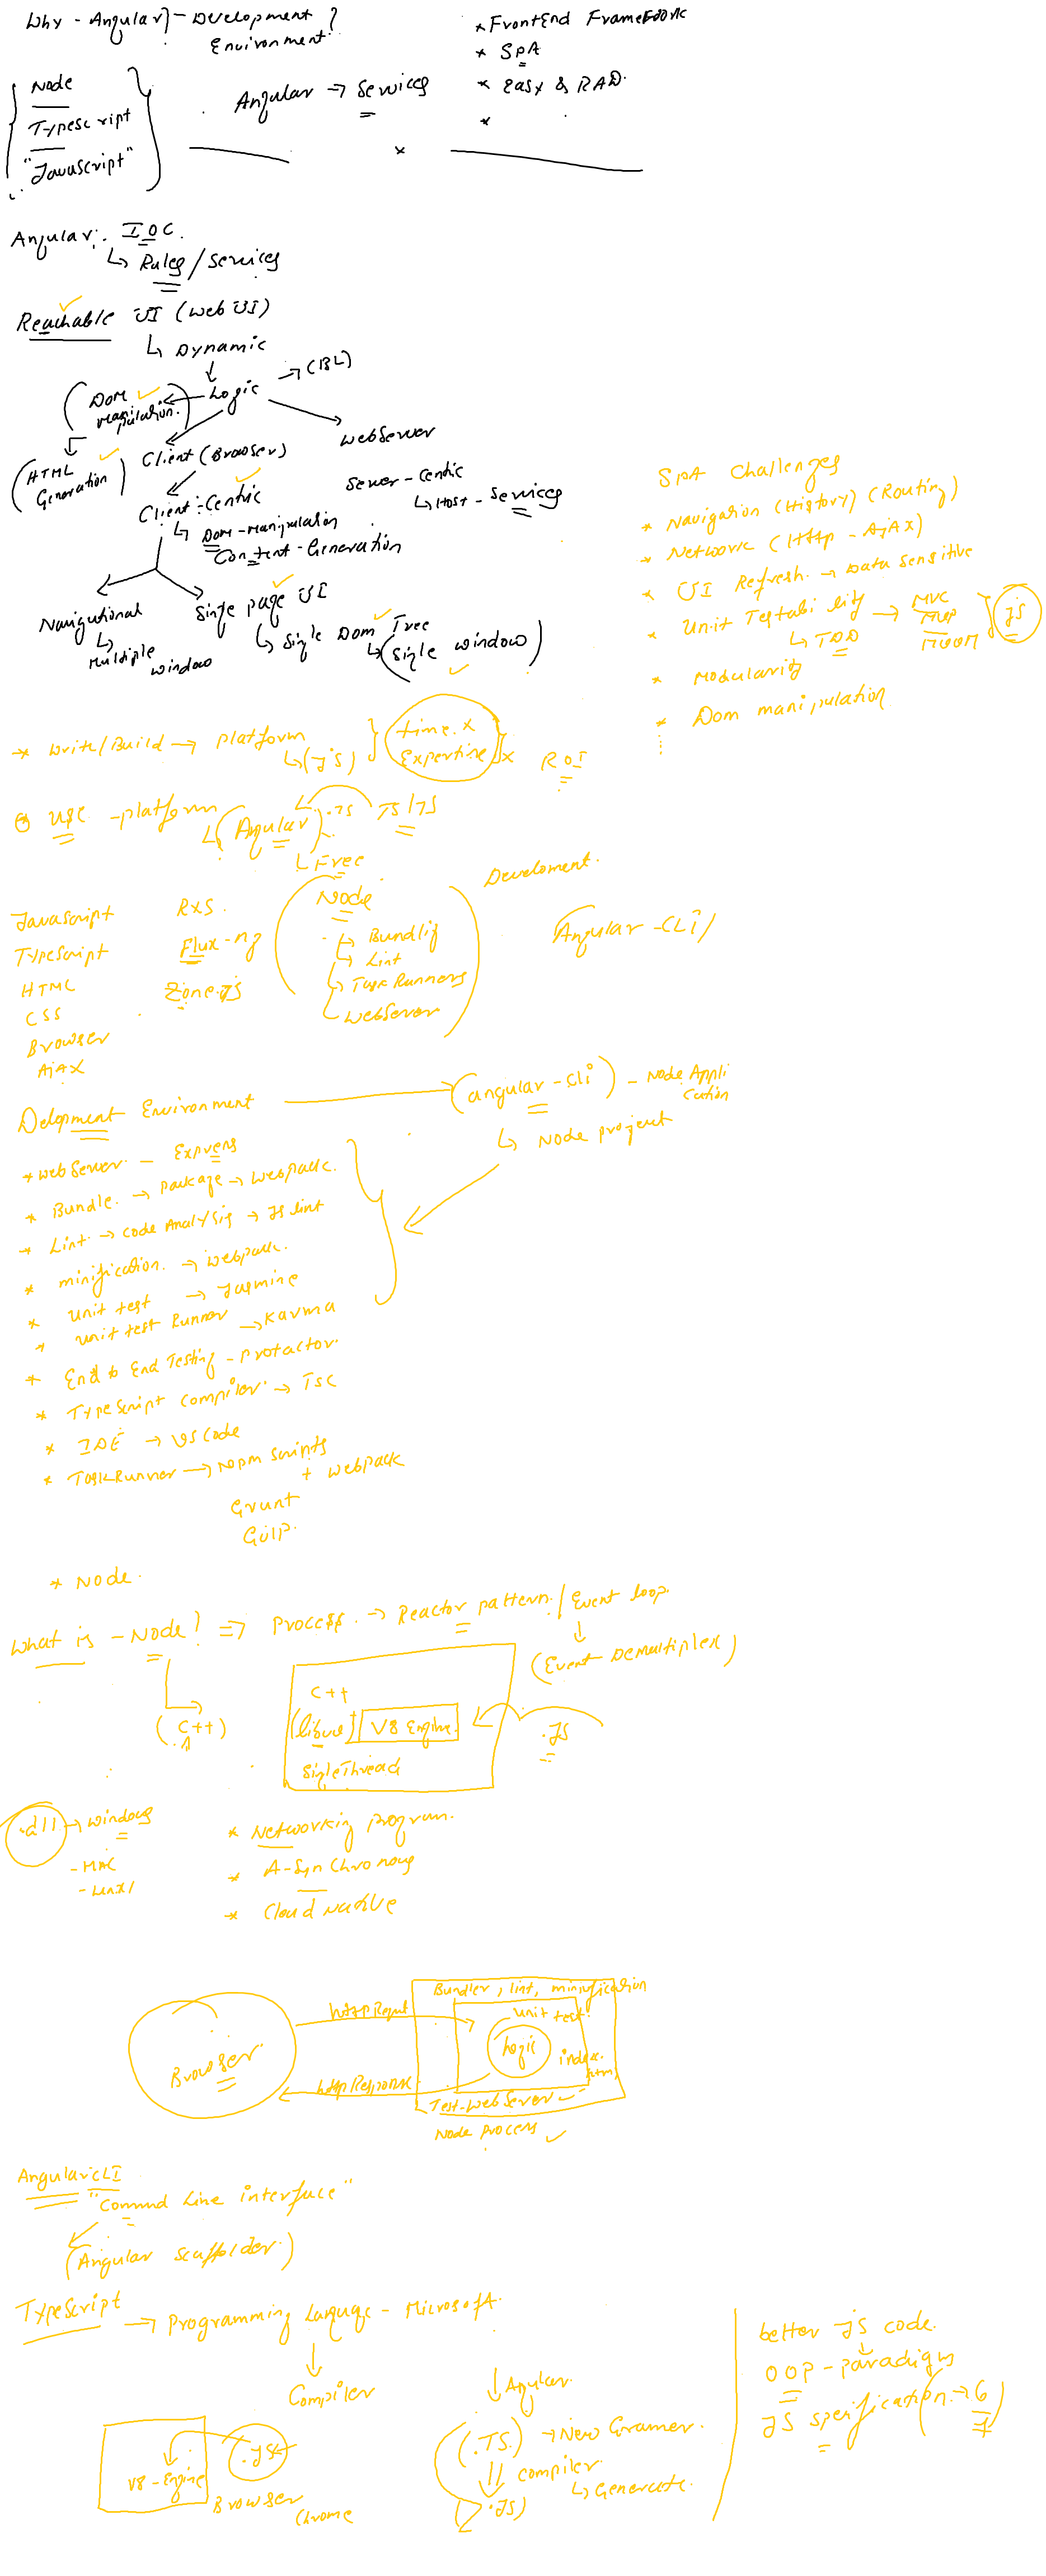 Why - Angular - Development Environment?
* FrontEnd Framework
* SPA
* Easy & RAD.
*
Node
Typescript
"Javascript"
Angular → Services
x
Angular: IOC.
↳ Rules/Services
Reachable UI (Web UI)
↳ Dynamic
Logic → (BL)
(Dom Manipulation.)
(HTML Generation)
Client (Browser)
WebServer
Client-Centric
↳ Dom-Manipulation
Content-Generation
Server-Centric
↳ Host-Services
Navigational
↳ Multiple Window
Single page UI
↳ Single Dom Tree
↳ (Single window)
SPA Challenges
* Navigation (History) (Routing)
* Network (Http - AJAX)
* UI Refresh. → Data Sensitive
* Unit Testability → MVC
MVP
MVVM
JS
↳ TDD
* Modularity
* Dom manipulation
* Write/Build → platform
↳ (JS)
time. x
Expertise x
ROI
use - platform
↳ (Angular) .JS TS/JS
↳ Free
Javascript
TypeScript
HTML
CSS
Browser
AJAX
RXS.
Flux-ng
Zone.JS
Node
↳ Bundlig
↳ Lint
↳ Task Runners
WebServer
Develoment.
Angular-CLI
Delopment Environment
(angular-cli) - Node Application
↳ Node project
* Web Server - Express
* Bundle. → package → webpack.
* Lint. → code Analysis → JS lint
* minification. → webpack.
* unit test → Jasmine
* unit test Runner → Karma
* End to End Testing - protactor.
* TypeScript compiler. → TSC
* IDE → VS Code
* TaskRunner → Npm scripts
+ webpack
Grunt
Gulp.
* Node.
What is - Node? ⇒ Process. → Reactor pattern. / Event loop.
(Event Demultiplex)
(C++)
C++
(libuv) V8 Engine.
SingleThread
.JS
.dll → Windows
- MAC
* Networking program.
* A-Synchronous
* Cloud Native
Browser.
httpRequst
httpResponse
Bundler, lint, minification
unit test.
Logic
index.html
Test-WebServer
Node process
Angular CLI
"Commnd Line interface"
(Angular Scaffolder.)
TypeScript → Programming Language - Microsoft.
Compiler
V8-Engine
.JS
Browser
Chrome
Angular.
(.TS.) → New Gramer.
compiler.
↳ Generate.
.JS)
better JS code.
OOP - paradigm
JS spefification. → 6
7